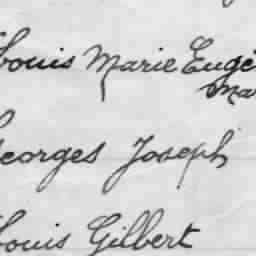 Louis Marie Eugè
Ma
Georges Joseph
Louis Gilbert